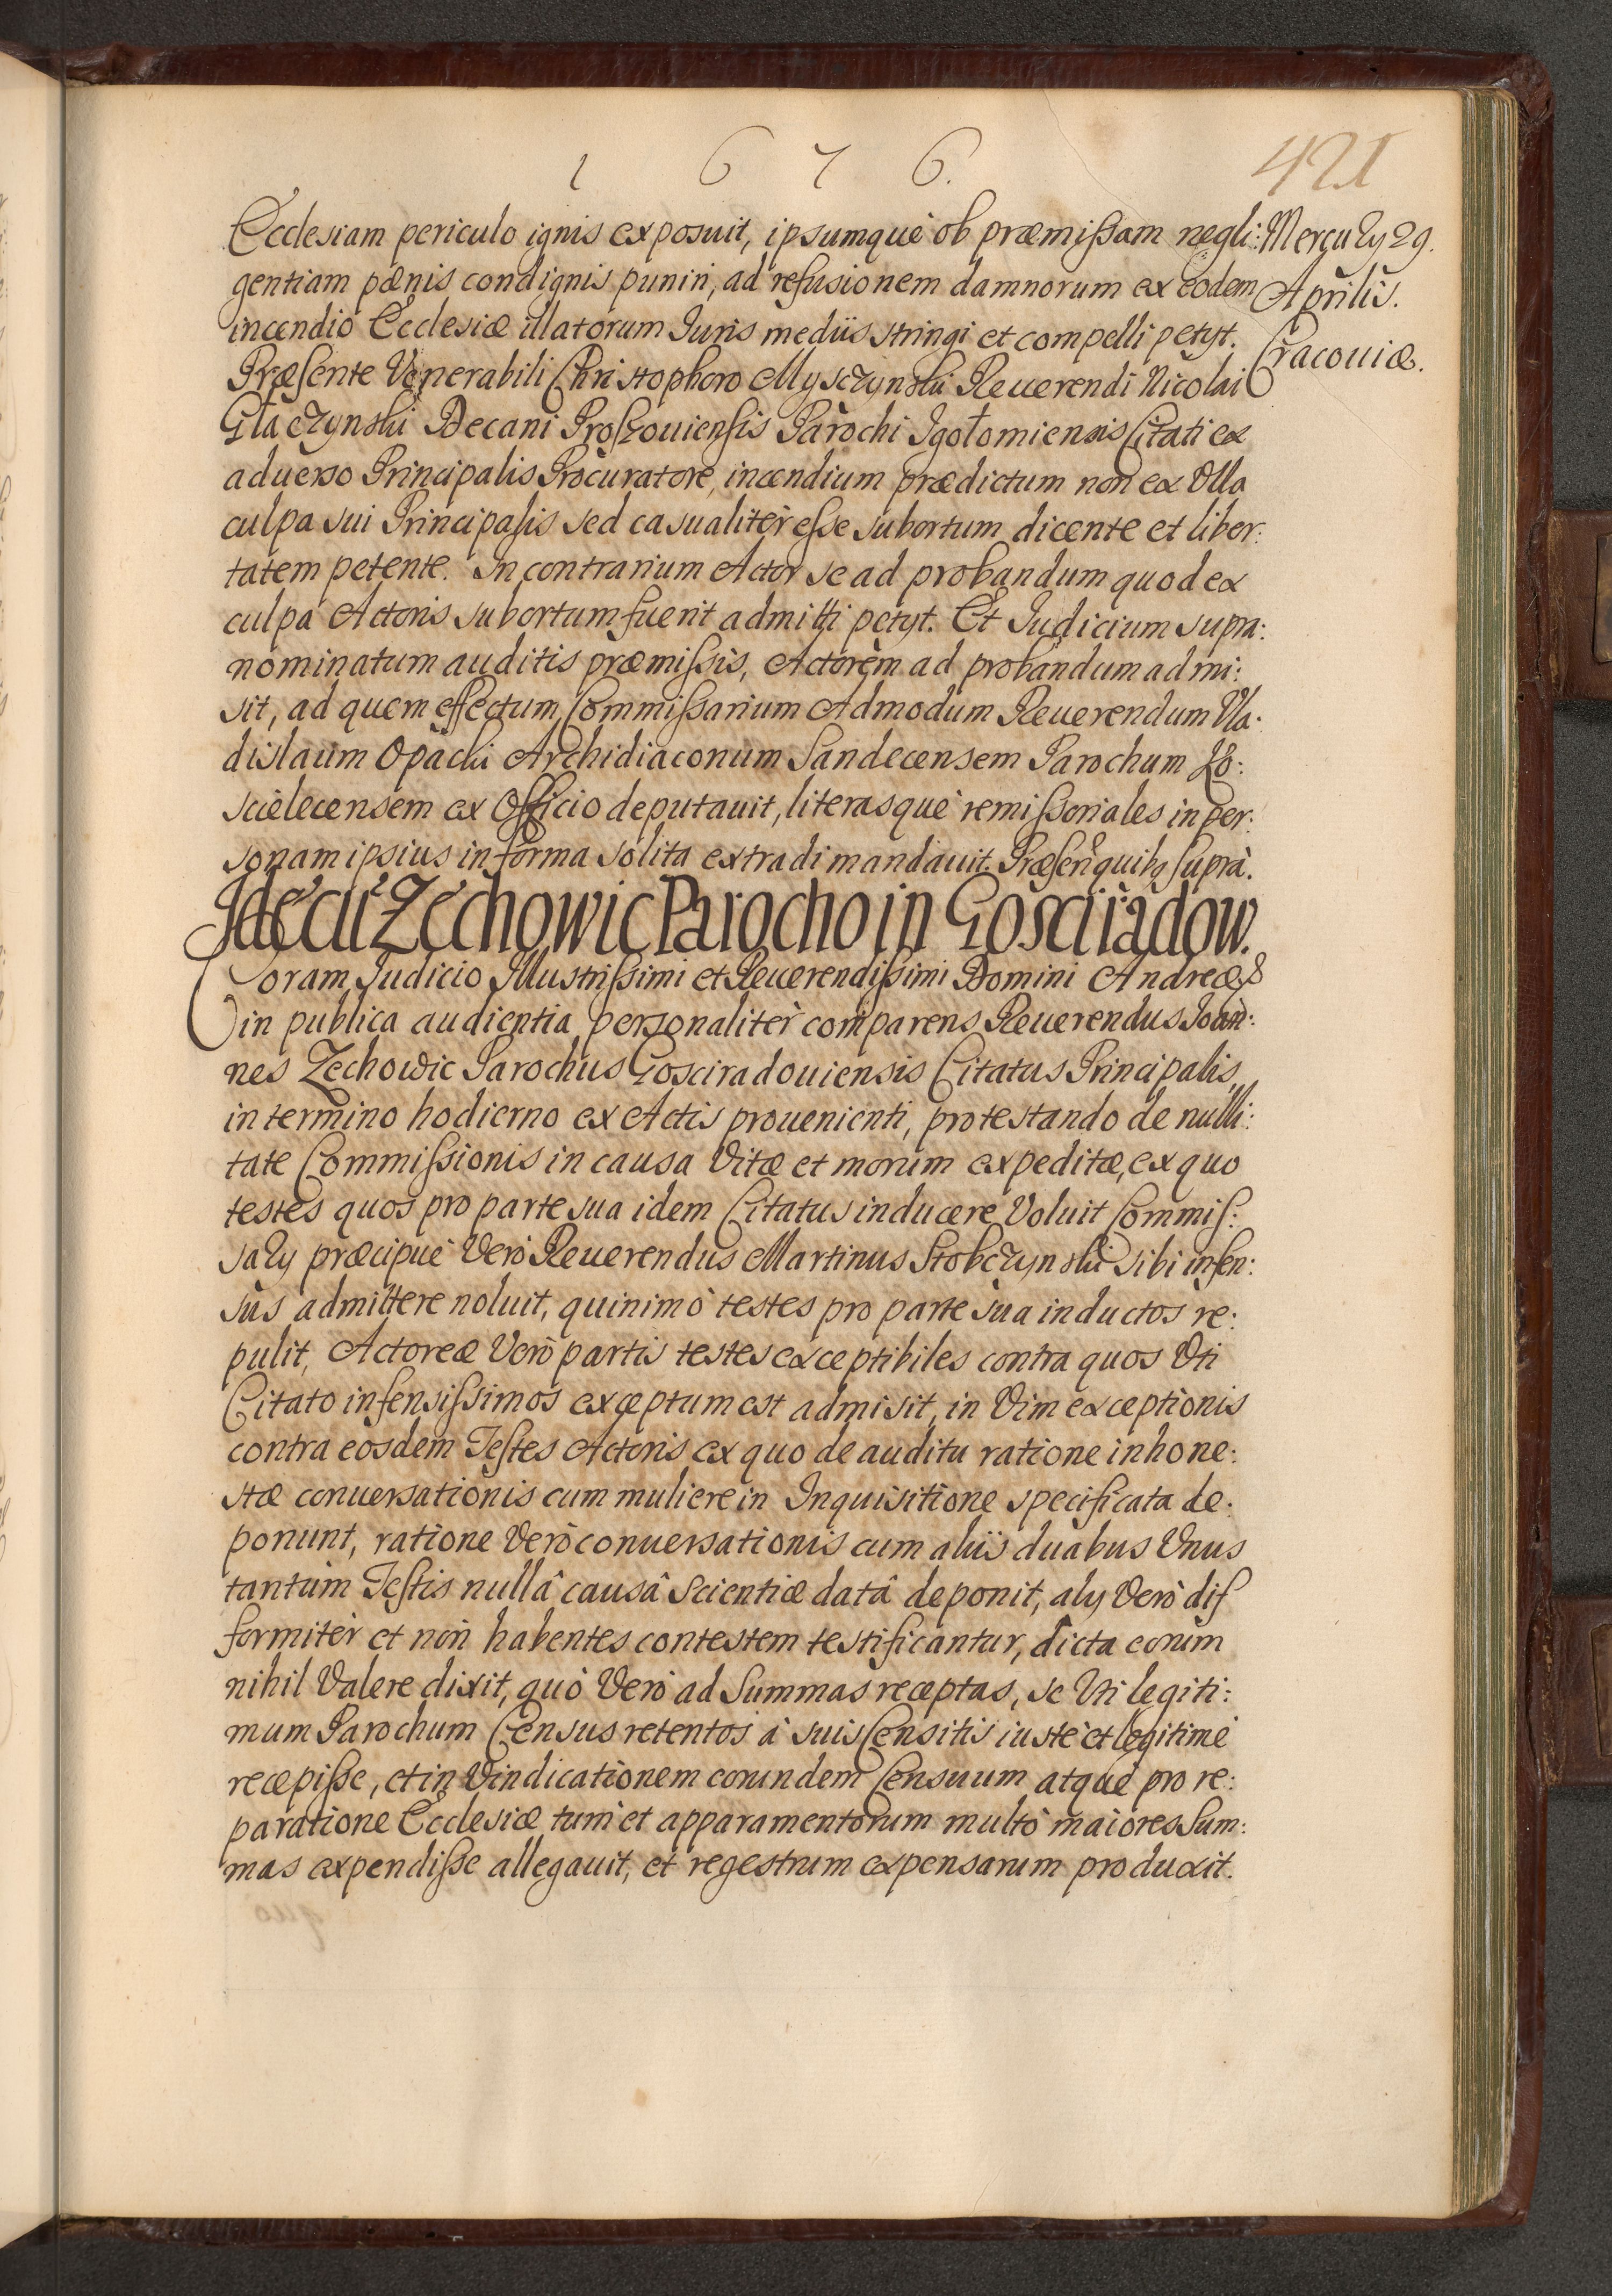 1 6 7 6.
421
Ecclesiam periculo ignis exposuit, ipsumquè ob præmißam negli:
gentiam pœnis condignis puniri, ad refusionem damnorum ex eodem
incendio Ecclesiæ illatorum Iuris mediis stringi et compelli petyt.
Præsente Venerabili Christophoro Mysczynski Reuerendi Nicolai
Głaczynski Decani Proszouiensis Parochi Igołomiensis Citati ex
aduerso Principalis Procuratore, incendium prædictum non ex Vlla
culpa sui Principalis sed casualitèr esse subortum dicente et liber:
tatem petente. In contrarium Actor se ad probandum quod ex
culpa Actoris subortum fuerit admitti petyt. Et Iudicium supra:
nominatum auditis præmißis, Actorem ad probandum admi:
sit, ad quem effectum Commißarium Admodum Reuerendum Vla:
dislaum Opacki Archidiaconum Sandecensem Parochum Ko:
scielecensem ex Officio deputauit, literasquè remißoriales in per:
sonam ipsius in forma solita extradi mandauit. Præsen quib9 suprà.
Merçurÿ 29.
Aprilis.
Cracouiæ.
Idẽ cũ Zechowic Parocho in Gosciradow.
Coram Iudicio Illustrißimi et Reuerendißimi Domini Andreæ &
in publica audientia personalitèr comparens Reuerendus Ioan:
nes Zechowic Parochus Gosciradouiensis Citatus Principalis,
in termino hodierno ex Actis prouenienti, protestando de nulli:
tate Commißionis in causa Vitæ et morum expeditæ, ex quo
testes quos pro parte sua idem Citatus inducere Voluit Commis:
sarÿ præcipuè Verò Reuerendus Martinus Stobczynski sibi infen:
sus admittere noluit, quinimò testes pro parte sua inductos re:
pulit, Actoreæ Verò partis testes exceptibiles contra quos Vti
Citato infensißimos exceptum est admisit, in Vim exceptionis
contra eosdem Testes Actoris ex quo de auditu ratione inhone:
stæ conuersationis cum muliere in Inquisitione specificata de:
ponunt, ratione Verò conuersationis cum aliis duabus Vnus
tantùm Testis nullâ causâ scientiæ datâ deponit, alÿ Verò dif
formitèr et non habentes contestem testificantur, dicta eorum
nihil Valere dixit, quò Verò ad Summas receptas, se Vti legiti:
mum Parochum Census retentos à suis Censitis iustè et legitimè
recepiße, et in Vindicationem eorundem Censuum atquè pro re:
paratione Ecclesiæ tum et apparamentorum multò maiores Sum:
mas expendiße allegauit, et regestrum expensarum produxit.